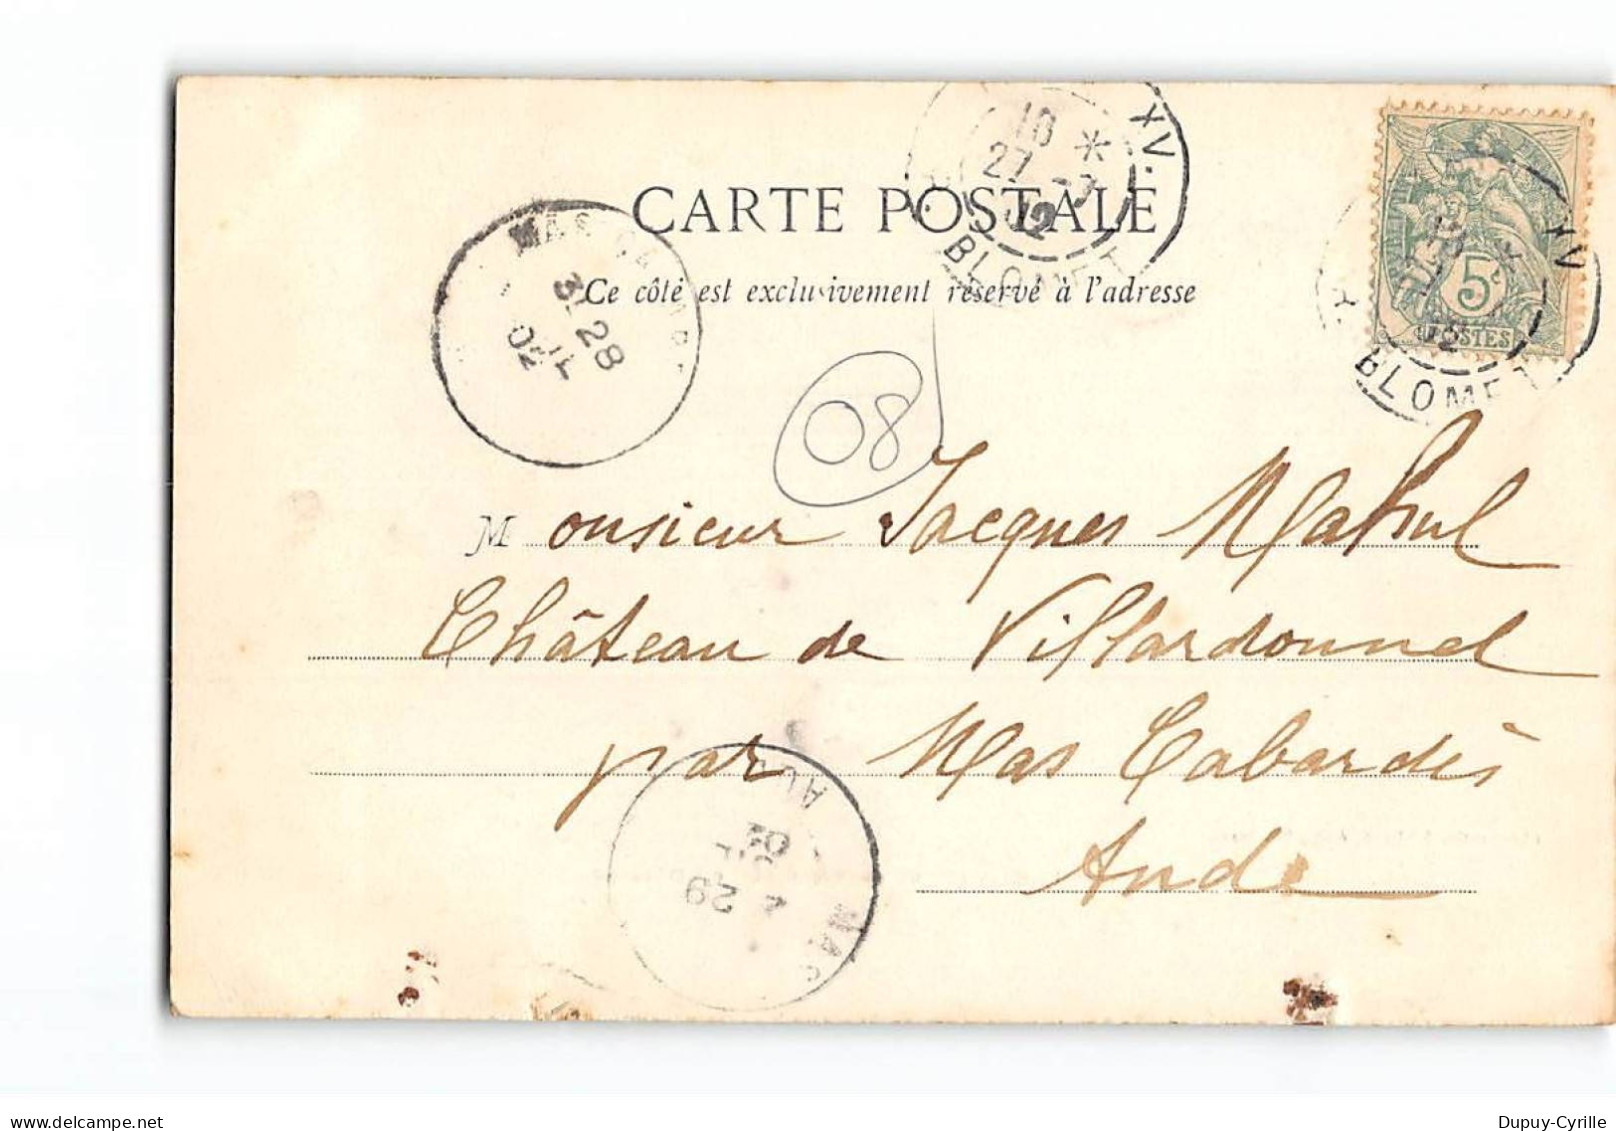 CARTE POSTALE
Ce côté est exclusivement réservé à l'adresse
XV.
10
27 -7
02
R. BLOMET
XV
10
02
R. BLOMET
5c
POSTES
MAS CABARD
3E 28
02
08
Monsieur Jacques Mahul
Château de Villardonnel
par Mas Cabardès
Aude
AUDE
MAS
29
02
delcampe.net
Dupuy-Cyrille